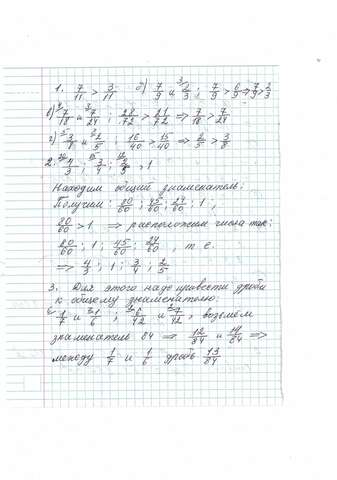 1. 7/11 > 3/11 б) 7/9 и 2/3 ; 7/9 > 6/9 ⇒ 7/9 > 2/3
в) 7/18 и 7/24 ; 28/72 > 21/72 ⇒ 7/18 > 7/24
г) 3/8 и 2/5 ; 16/40 > 15/40 ⇒ 2/5 > 3/8
2. 4/3 ; 3/4 ; 2/5 ; 1
Находим общий знаменатель:
Получим: 80/60 ; 45/60 ; 24/60 ; 1 ,
80/60 > 1 ⇒ расположим числа так:
80/60 ; 1 ; 45/60 ; 24/60 , т. е.
⇒ 4/3 ; 1 ; 3/4 ; 2/5
3. Для этого надо привести дроби
к общему знаменателю:
1/7 и 1/6 ; 6/42 и 7/42 , возьмём
знаменатель 84 ⇒ 12/84 и 14/84 ⇒
между 1/7 и 1/6 дробь 13/84